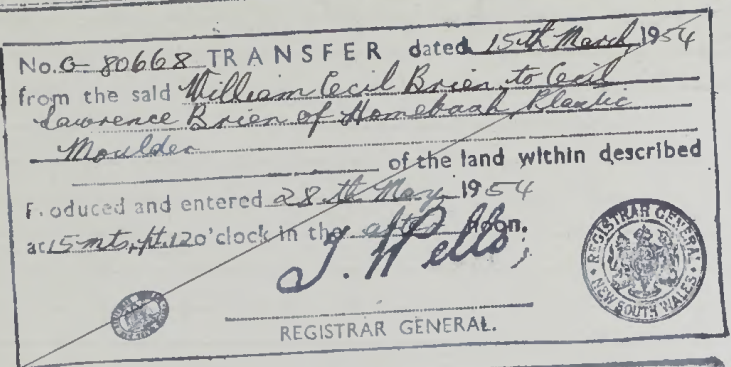 No. G- 80668 TRANSFER dated 15th March 1954
from the said William Cecil Brien, to Cecil
Lawrence Brien of Homebush, Plastic
Moulder
of the land within described
Produced and entered 28th May 1954
at 15 mts. pt. 12 o'clock in the after noon.
J. Wells,
REGISTRAR GENERAL.
REGISTRAR GENERAL
NEW SOUTH WALES